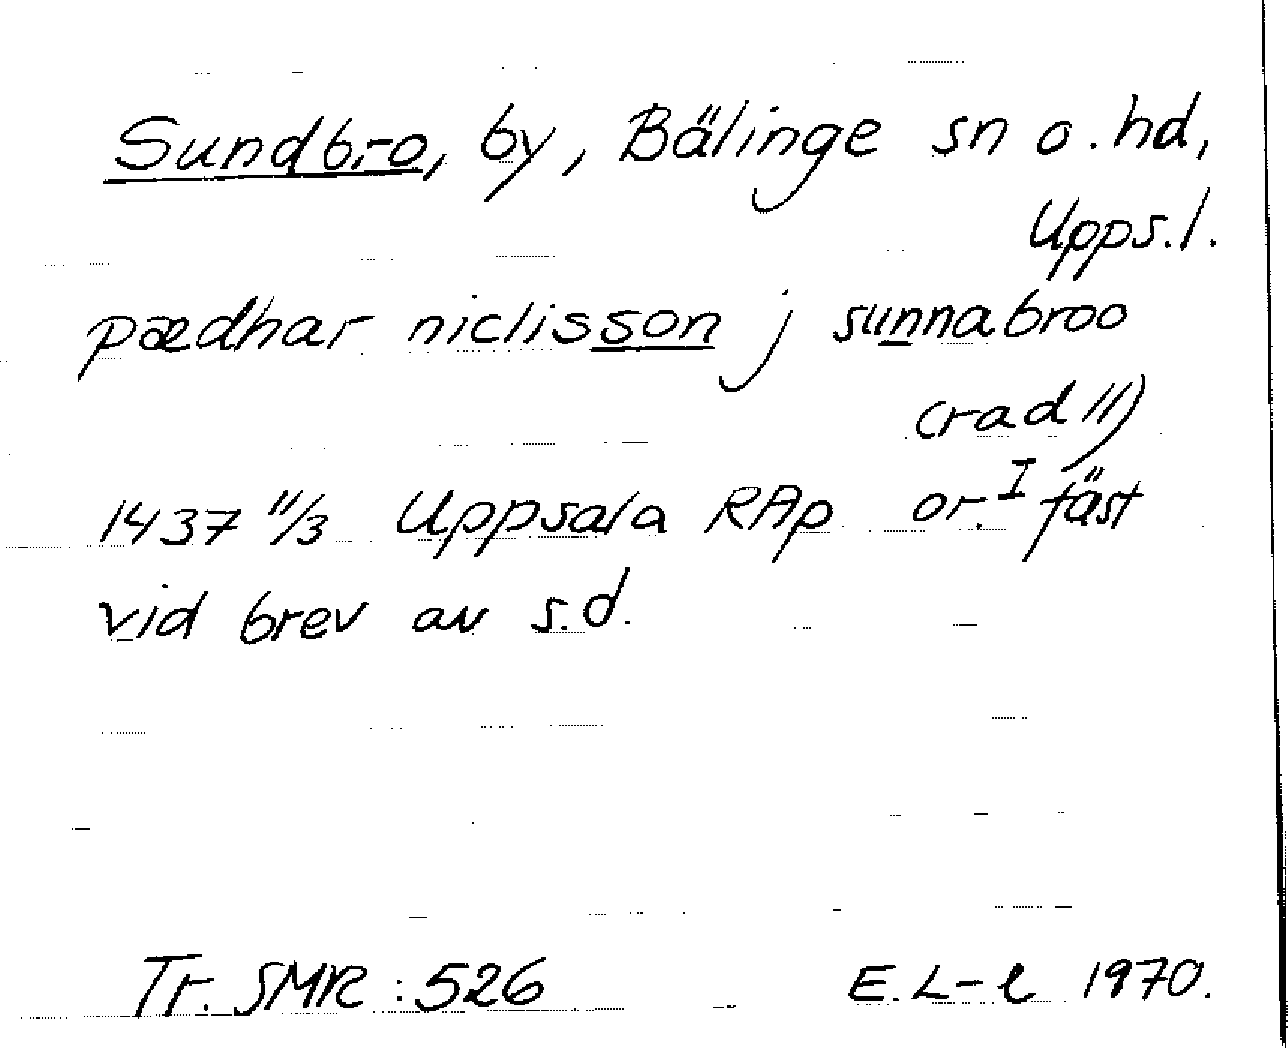 Sundbro, by, Bälinge sn o. hd,
Upps.l.
pædhar niclisson j sunnabroo
(rad 11)
1437 11/3 Uppsala RAp or. I fäst
vid brev av s.d.
Tr. SMR : 526 E. L-l 1970.